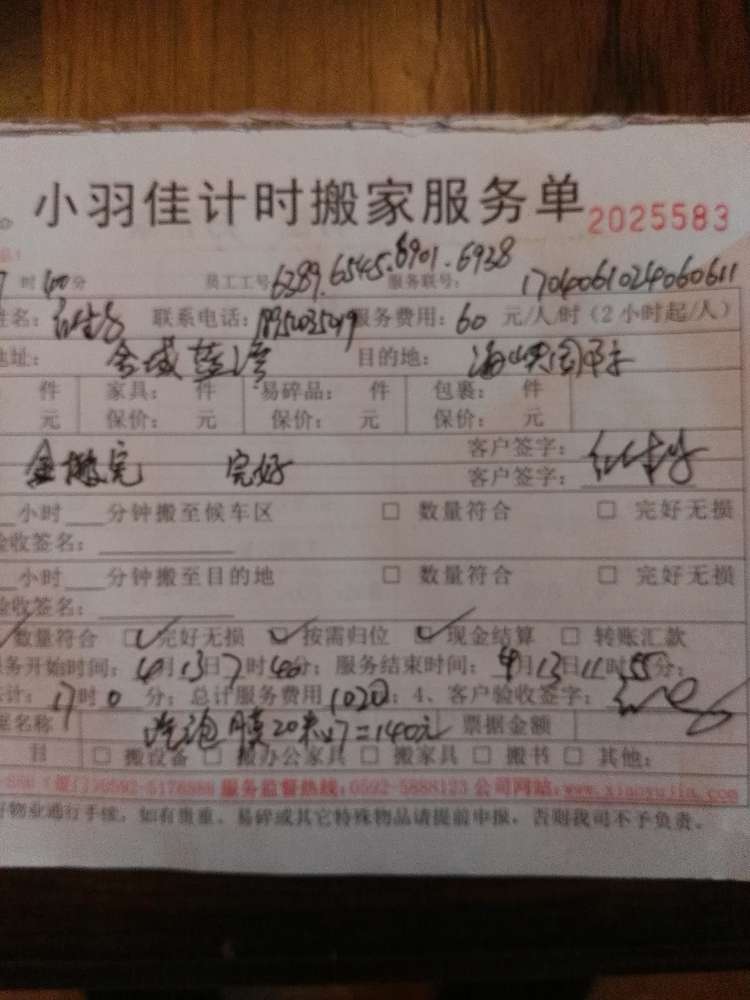 小羽佳计时搬家服务单 2025583
时40分 员工工号6289.6545.6901.6938 服务联号：1704006102406061 1
姓名： 联系电话：18950035019 服务费用：60 元/人/时（2小时起/人）
地址：金域蓝湾 目的地：海峡国际
件 家具： 件 易碎品： 件 包裹： 件
元 保价： 元 保价： 元 保价： 元
全搬完 完好 客户签字：
客户签字：
小时 分钟搬至候车区 □ 数量符合 □ 完好无损
验收签名：
小时 分钟搬至目的地 □ 数量符合 □ 完好无损
验收签名：
数量符合 □ 完好无损 □ 按需归位 □ 现金结算 □ 转账汇款
服务开始时间：4月13日7时40分；服务结束时间：4月13日11时55分；
计：17时0分；总计服务费用1020；4、客户验收签字：
名称 汽泡膜20米×7=140元 票据金额
目 □ 搬设备 □ 搬办公家具 □ 搬家具 □ 搬书 □ 其他：
0592-5176888 服务监督热线：0592-5888123 公司网站：www.xiaoyujia.com
好物业通行手续，如有贵重、易碎或其它特殊物品请提前申报，否则我司不予负责。